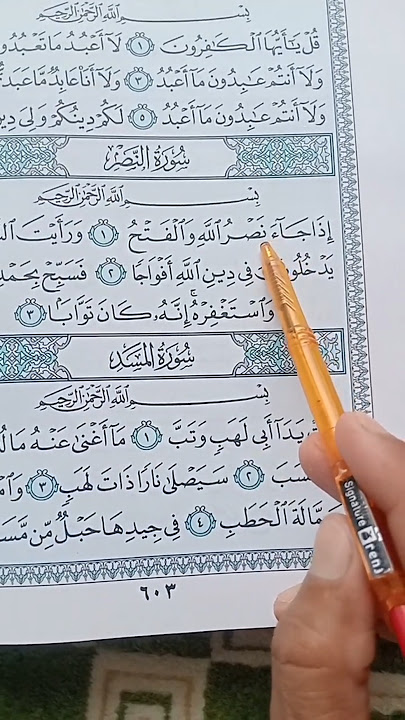 بِسْمِ ٱللَّهِ ٱلرَّحْمَٰنِ ٱلرَّحِيمِ
قُلْ يَٰٓأَيُّهَا ٱلْكَٰفِرُونَ ١ لَآ أَعْبُدُ مَا تَعْبُدُو
وَلَآ أَنتُمْ عَٰبِدُونَ مَآ أَعْبُدُ ٣ وَلَآ أَنَا۠ عَابِدٌ مَّا عَبَدتُّ
وَلَآ أَنتُمْ عَٰبِدُونَ مَآ أَعْبُدُ ٥ لَكُمْ دِينُكُمْ وَلِىَ دِينِ
سُورَةُ النَّصْرِ
بِسْمِ ٱللَّهِ ٱلرَّحْمَٰنِ ٱلرَّحِيمِ
إِذَا جَآءَ نَصْرُ ٱللَّهِ وَٱلْفَتْحُ ١ وَرَأَيْتَ
يَدْخُلُونَ فِى دِينِ ٱللَّهِ أَفْوَاجًا ٢ فَسَبِّحْ بِحَمْدِ
وَٱسْتَغْفِرْهُ ۚ إِنَّهُۥ كَانَ تَوَّابًۢا ٣
سُورَةُ المَسَدِ
بِسْمِ ٱللَّهِ ٱلرَّحْمَٰنِ ٱلرَّحِيمِ
يَدَآ أَبِى لَهَبٍ وَتَبَّ ١ مَآ أَغْنَىٰ عَنْهُ مَالُهُ
سَبَ ٢ سَيَصْلَىٰ نَارًا ذَاتَ لَهَبٍ ٣ وَٱمْ
حَمَّالَةَ ٱلْحَطَبِ ٤ فِى جِيدِهَا حَبْلٌ مِّن مَّسَ
٦٠٣
Signature